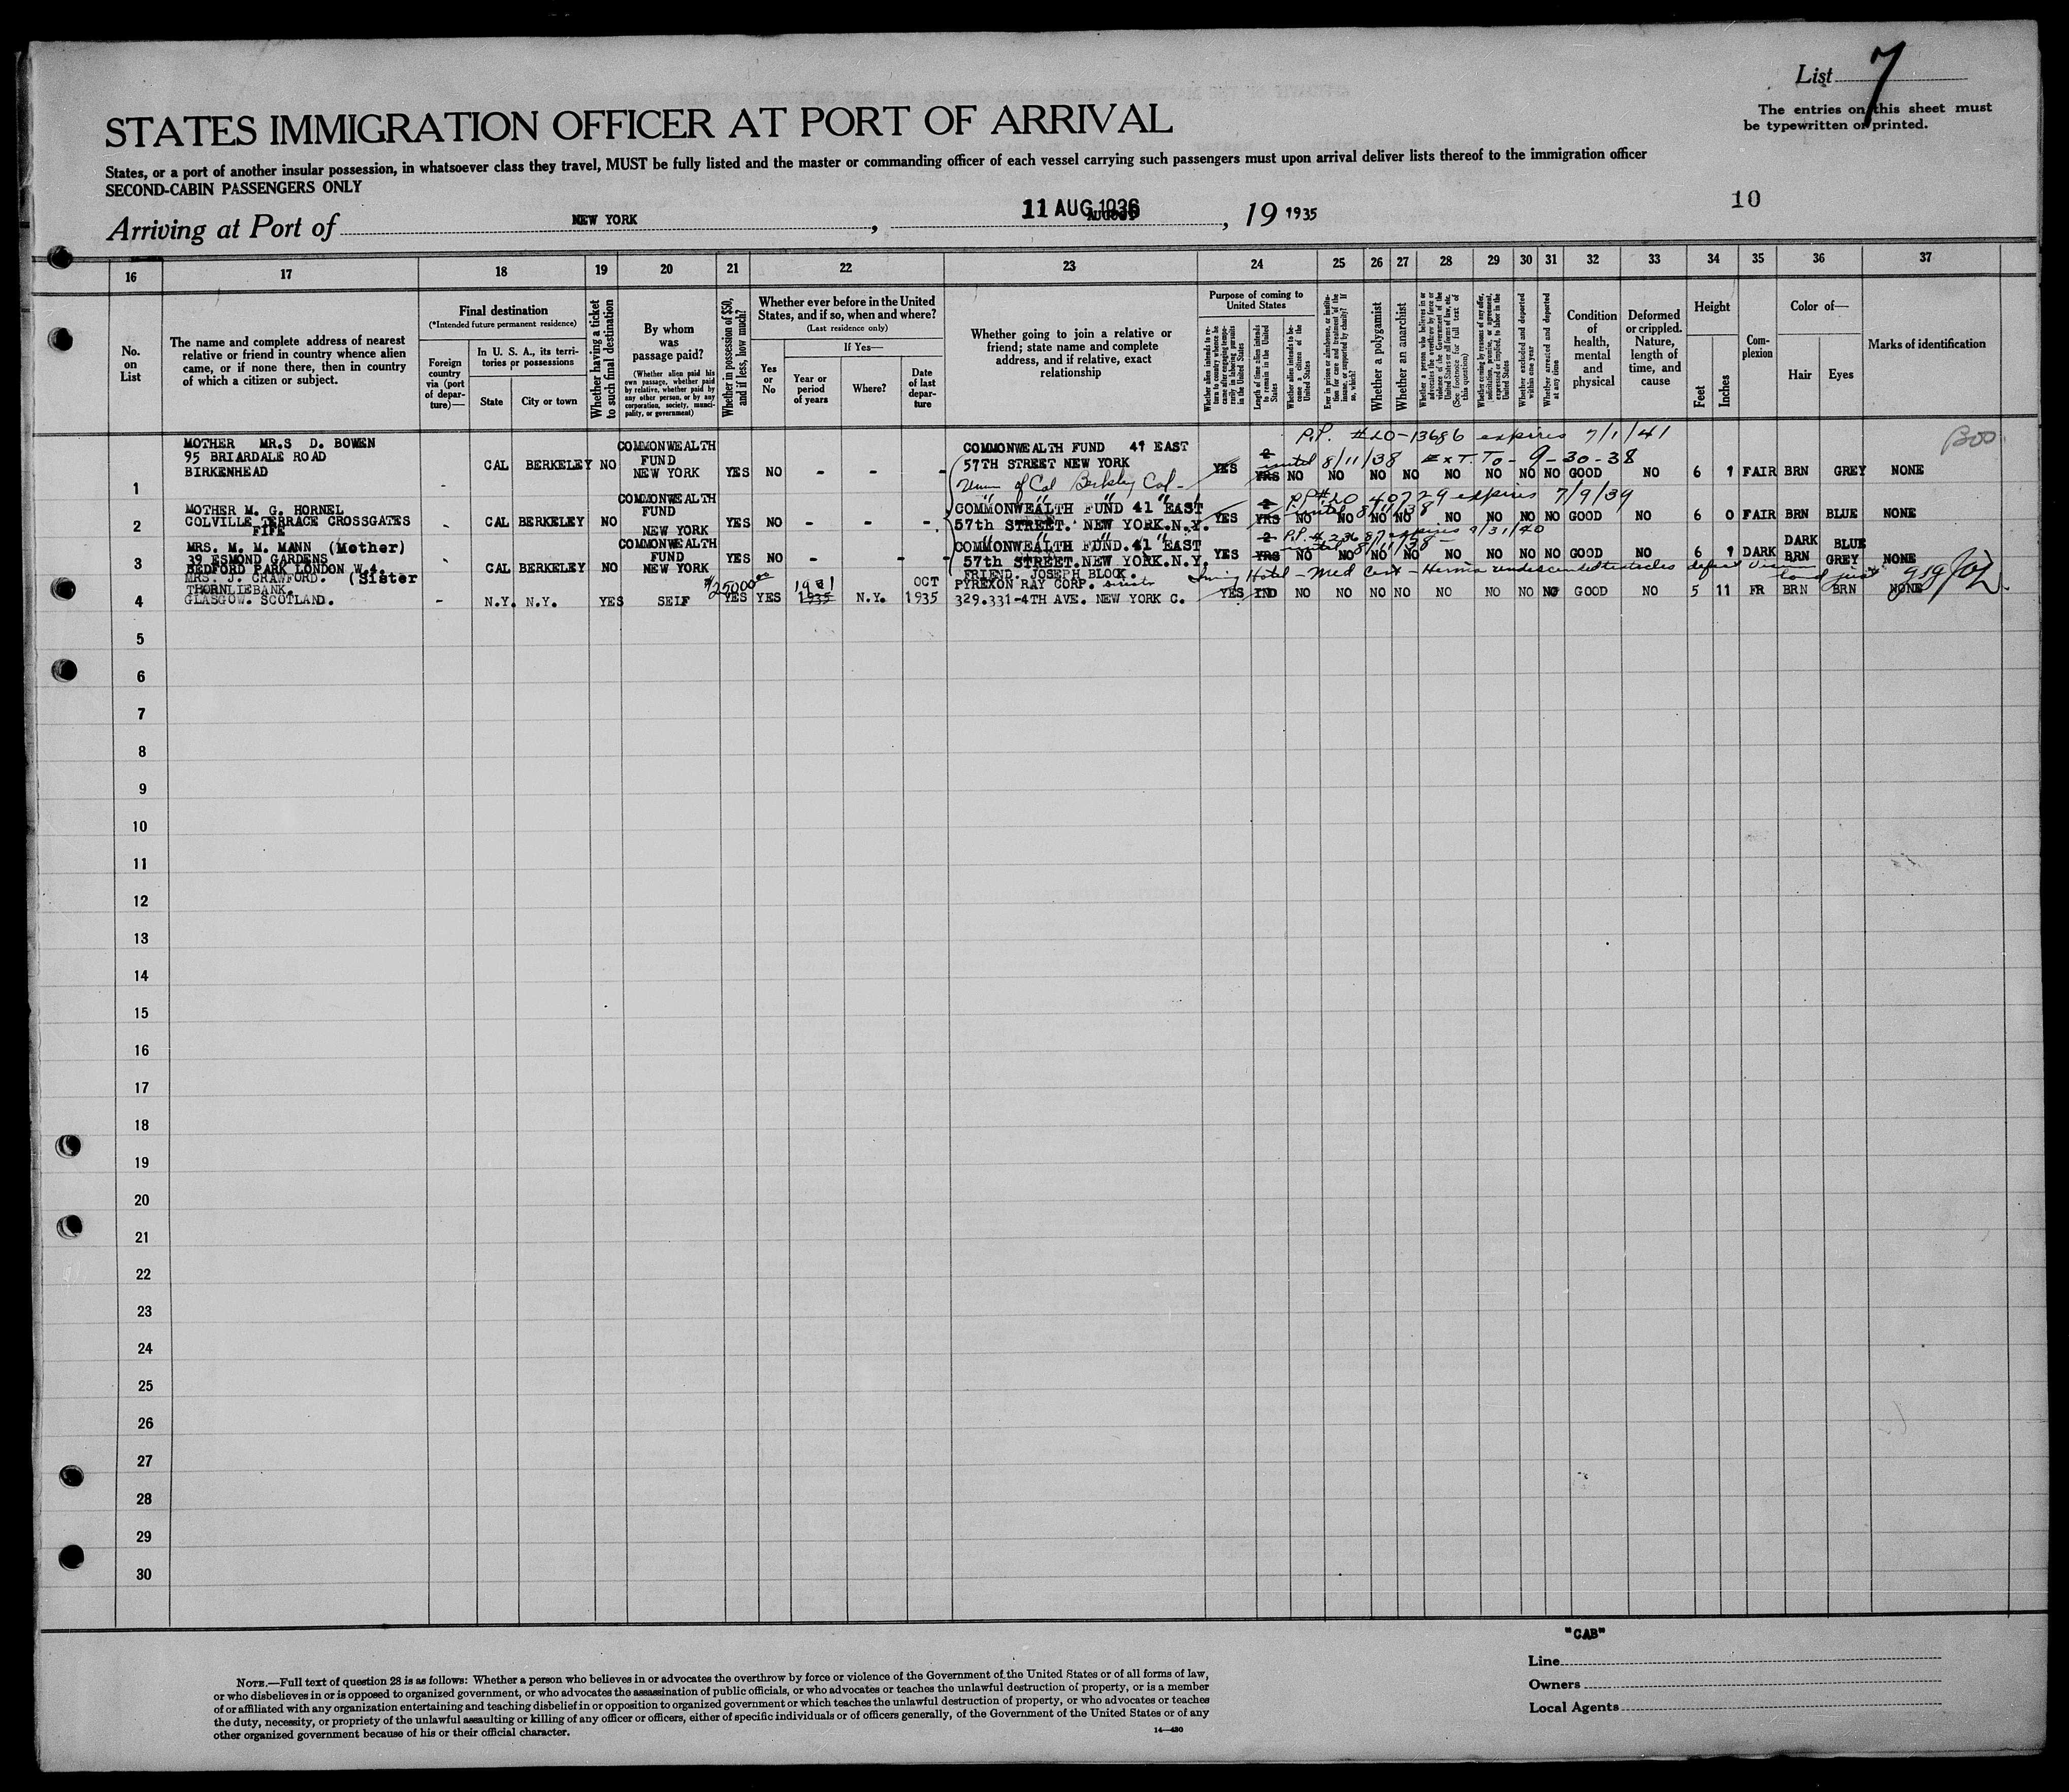 List 7
The entries on this sheet must
be typewritten or printed.
STATES IMMIGRATION OFFICER AT PORT OF ARRIVAL
States, or a port of another insular possession, in whatsoever class they travel, MUST be fully listed and the master or commanding officer of each vessel carrying such passengers must upon arrival deliver lists thereof to the immigration officer
SECOND-CABIN PASSENGERS ONLY
10
Arriving at Port of NEW YORK, 11 AUG 1936 AUGUST, 19 1935
16 17 18 19 20 21 22 23 24 25 26 27 28 29 30 31 32 33 34 35 36 37
No. on List
The name and complete address of nearest relative or friend in country whence alien came, or if none there, then in country of which a citizen or subject.
Final destination
(*Intended future permanent residence)
Foreign country via (port of departure)—
In U. S. A., its territories or possessions
State
City or town
Whether having a ticket to such final destination
By whom was passage paid?
(Whether alien paid his own passage, whether paid by relative, whether paid by any other person, or by any corporation, society, municipality, or government)
Whether in possession of $50, and if less, how much?
Whether ever before in the United States, and if so, when and where?
(Last residence only)
Yes or No
If Yes—
Year or period of years
Where?
Date of last departure
Whether going to join a relative or friend; state name and complete address, and if relative, exact relationship
Purpose of coming to United States
Whether alien intends to return to country whence he came after engaging temporarily in laboring pursuits in the United States
Length of time alien intends to remain in the United States
Whether alien intends to become a citizen of the United States
Ever in prison or almshouse, or institution for care and treatment of the insane, or supported by charity? If so, which?
Whether a polygamist
Whether an anarchist
Whether a person who believes in or advocates the overthrow by force or violence of the Government of the United States or all forms of law, etc. (See footnote for full text of this question)
Whether coming by reason of any offer, solicitation, promise, or agreement, expressed or implied, to labor in the United States
Whether excluded and deported within one year
Whether arrested and deported at any time
Condition of health, mental and physical
Deformed or crippled. Nature, length of time, and cause
Height
Feet
Inches
Complexion
Color of—
Hair
Eyes
Marks of identification
P.P. #20-13686 expires 7/1/41
MOTHER MR.S D. BOWEN
95 BRIARDALE ROAD
BIRKENHEAD
1 - CAL BERKELEY NO COMMONWEALTH FUND NEW YORK YES NO - - - COMMONWEALTH FUND 41 EAST
57TH STREET NEW YORK
Univ of Cal Berkeley Cal-
YES 2 YRS 8/11/38 EXT. TO - 9-30-38
NO NO NO NO NO NO NO NO GOOD NO 6 1 FAIR BRN GREY NONE
P.P.#20 40729 expires 7/9/39
MOTHER M. G. HORNEL
COLVILLE TERRACE CROSSGATES
FIFE
2 - CAL BERKELEY NO COMMONWEALTH FUND NEW YORK YES NO - - - " " " "
COMMONWEALTH FUND 41 EAST
57th STREET. NEW YORK.N.Y.
YES 2 YRS 8/11/38 NO NO NO NO NO NO NO NO GOOD NO 6 0 FAIR BRN BLUE NONE
MRS. M. M. MANN (Mother)
39 ESMOND GARDENS
BEDFORD PARK LONDON W.4.
3 - CAL BERKELEY NO COMMONWEALTH FUND NEW YORK YES NO - - - " " " "
COMMONWEALTH FUND. 41 EAST
57th STREET.NEW YORK.N.Y.
YES 2 YRS 8/11/38 NO NO NO NO NO NO NO NO GOOD NO 6 1 DARK DARK BRN BLUE GREY NONE
MRS. J. CRAWFORD. (Sister
THORNLIEBANK.
GLASGOW. SCOTLAND.
4 - N.Y. N.Y. YES SELF YES YES 1931 1935 N.Y. OCT 1935 FRIEND. JOSEPH BLOCK.
PYREXON RAY CORP.
329.331-4TH AVE. NEW YORK C.
Hotel - Med Cert - Hernia undescended testicles
YES IND NO NO NO NO NO NO NO NO GOOD NO 5 11 FR BRN BRN NONE
5
6
7
8
9
10
11
12
13
14
15
16
17
18
19
20
21
22
23
24
25
26
27
28
29
30
"CAB"
Line
Owners
Local Agents
NOTE.—Full text of question 28 is as follows: Whether a person who believes in or advocates the overthrow by force or violence of the Government of the United States or of all forms of law,
or who disbelieves in or is opposed to organized government, or who advocates the assassination of public officials, or who advocates or teaches the unlawful destruction of property, or is a member
of or affiliated with any organization entertaining and teaching disbelief in or opposition to organized government or which teaches the unlawful destruction of property, or who advocates or teaches
the duty, necessity, or propriety of the unlawful assaulting or killing of any officer or officers, either of specific individuals or of officers generally, of the Government of the United States or of any
other organized government because of his or their official character.
14—430